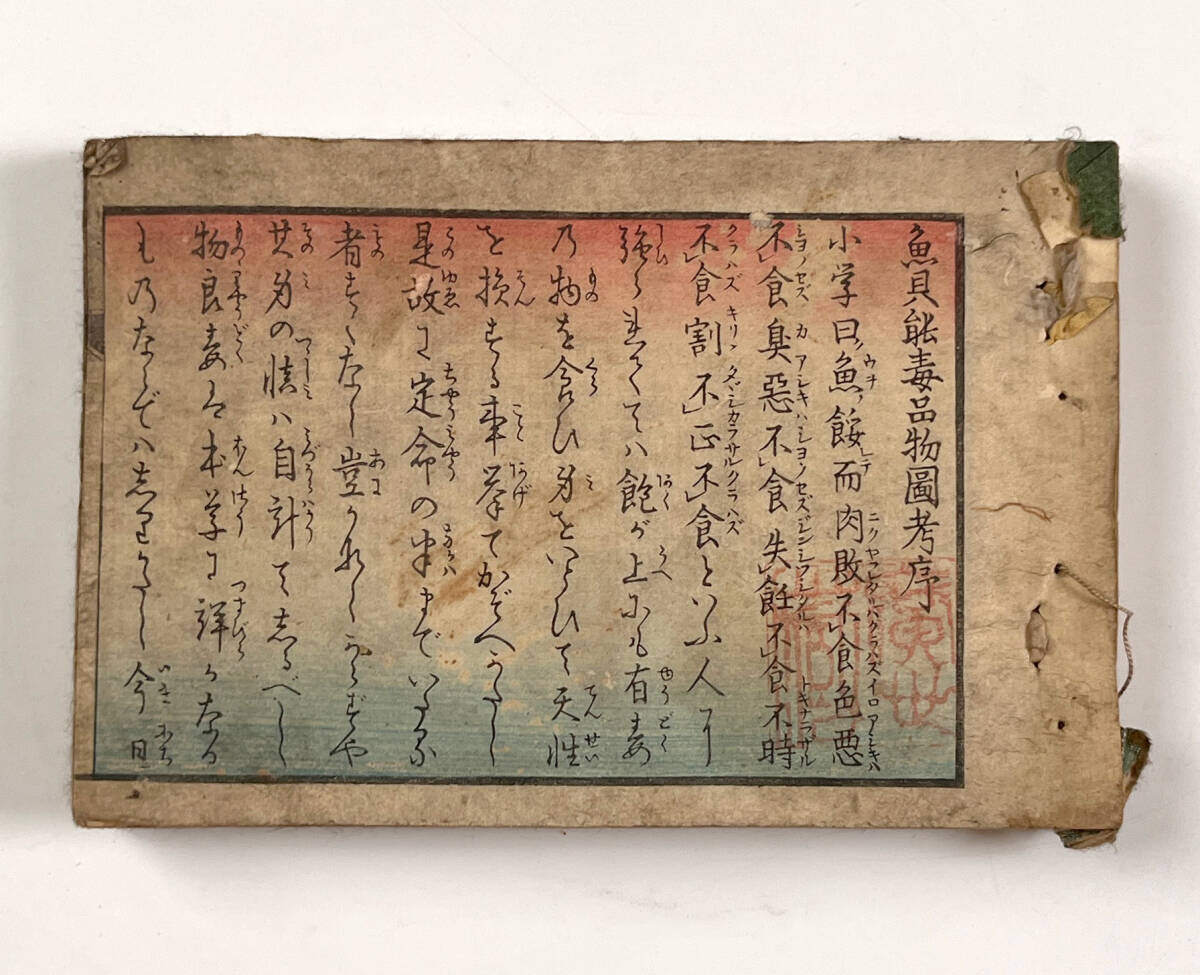 魚貝能毒品物圖考序
小学曰魚餒而肉敗不食色悪
不食臭惡不食失飪不食不時
不食割不正不食といふ人に
強られてくては飽が上にも有毒
乃物を食ひ身をいとひて天性
を損する事挙てかぞへがたし
是故に定命の半までいたる
者すくなし豈かなしからずや
其身の慎ハ自計て志るべし
物良毒ハ本草に詳かなる
ものならでハ志りがたし今日